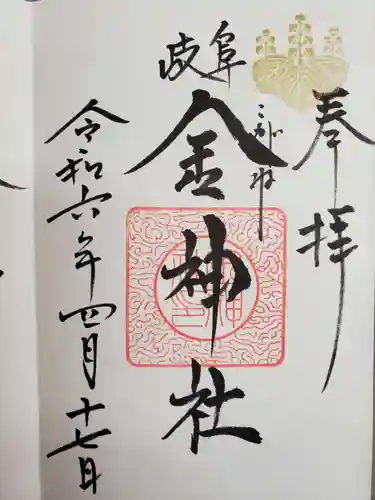 奉拝
岐阜
こがね
金神社
令和六年四月十七日